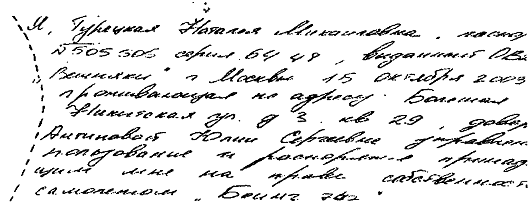 Я, Турецкая Наталья Михайловна, паспо
№505 306 серия 64 49, выданный ОВД
Вешняки" г Москвы 15 октября 2003
проживающая по адресу: Большая
Никитская ул. д 3. кв 29, довер
Антиповой Юлии Сергеевне управлен
пользование и распоряжен принад
щим мне на праве собственност
самолетом „Боинг 747"